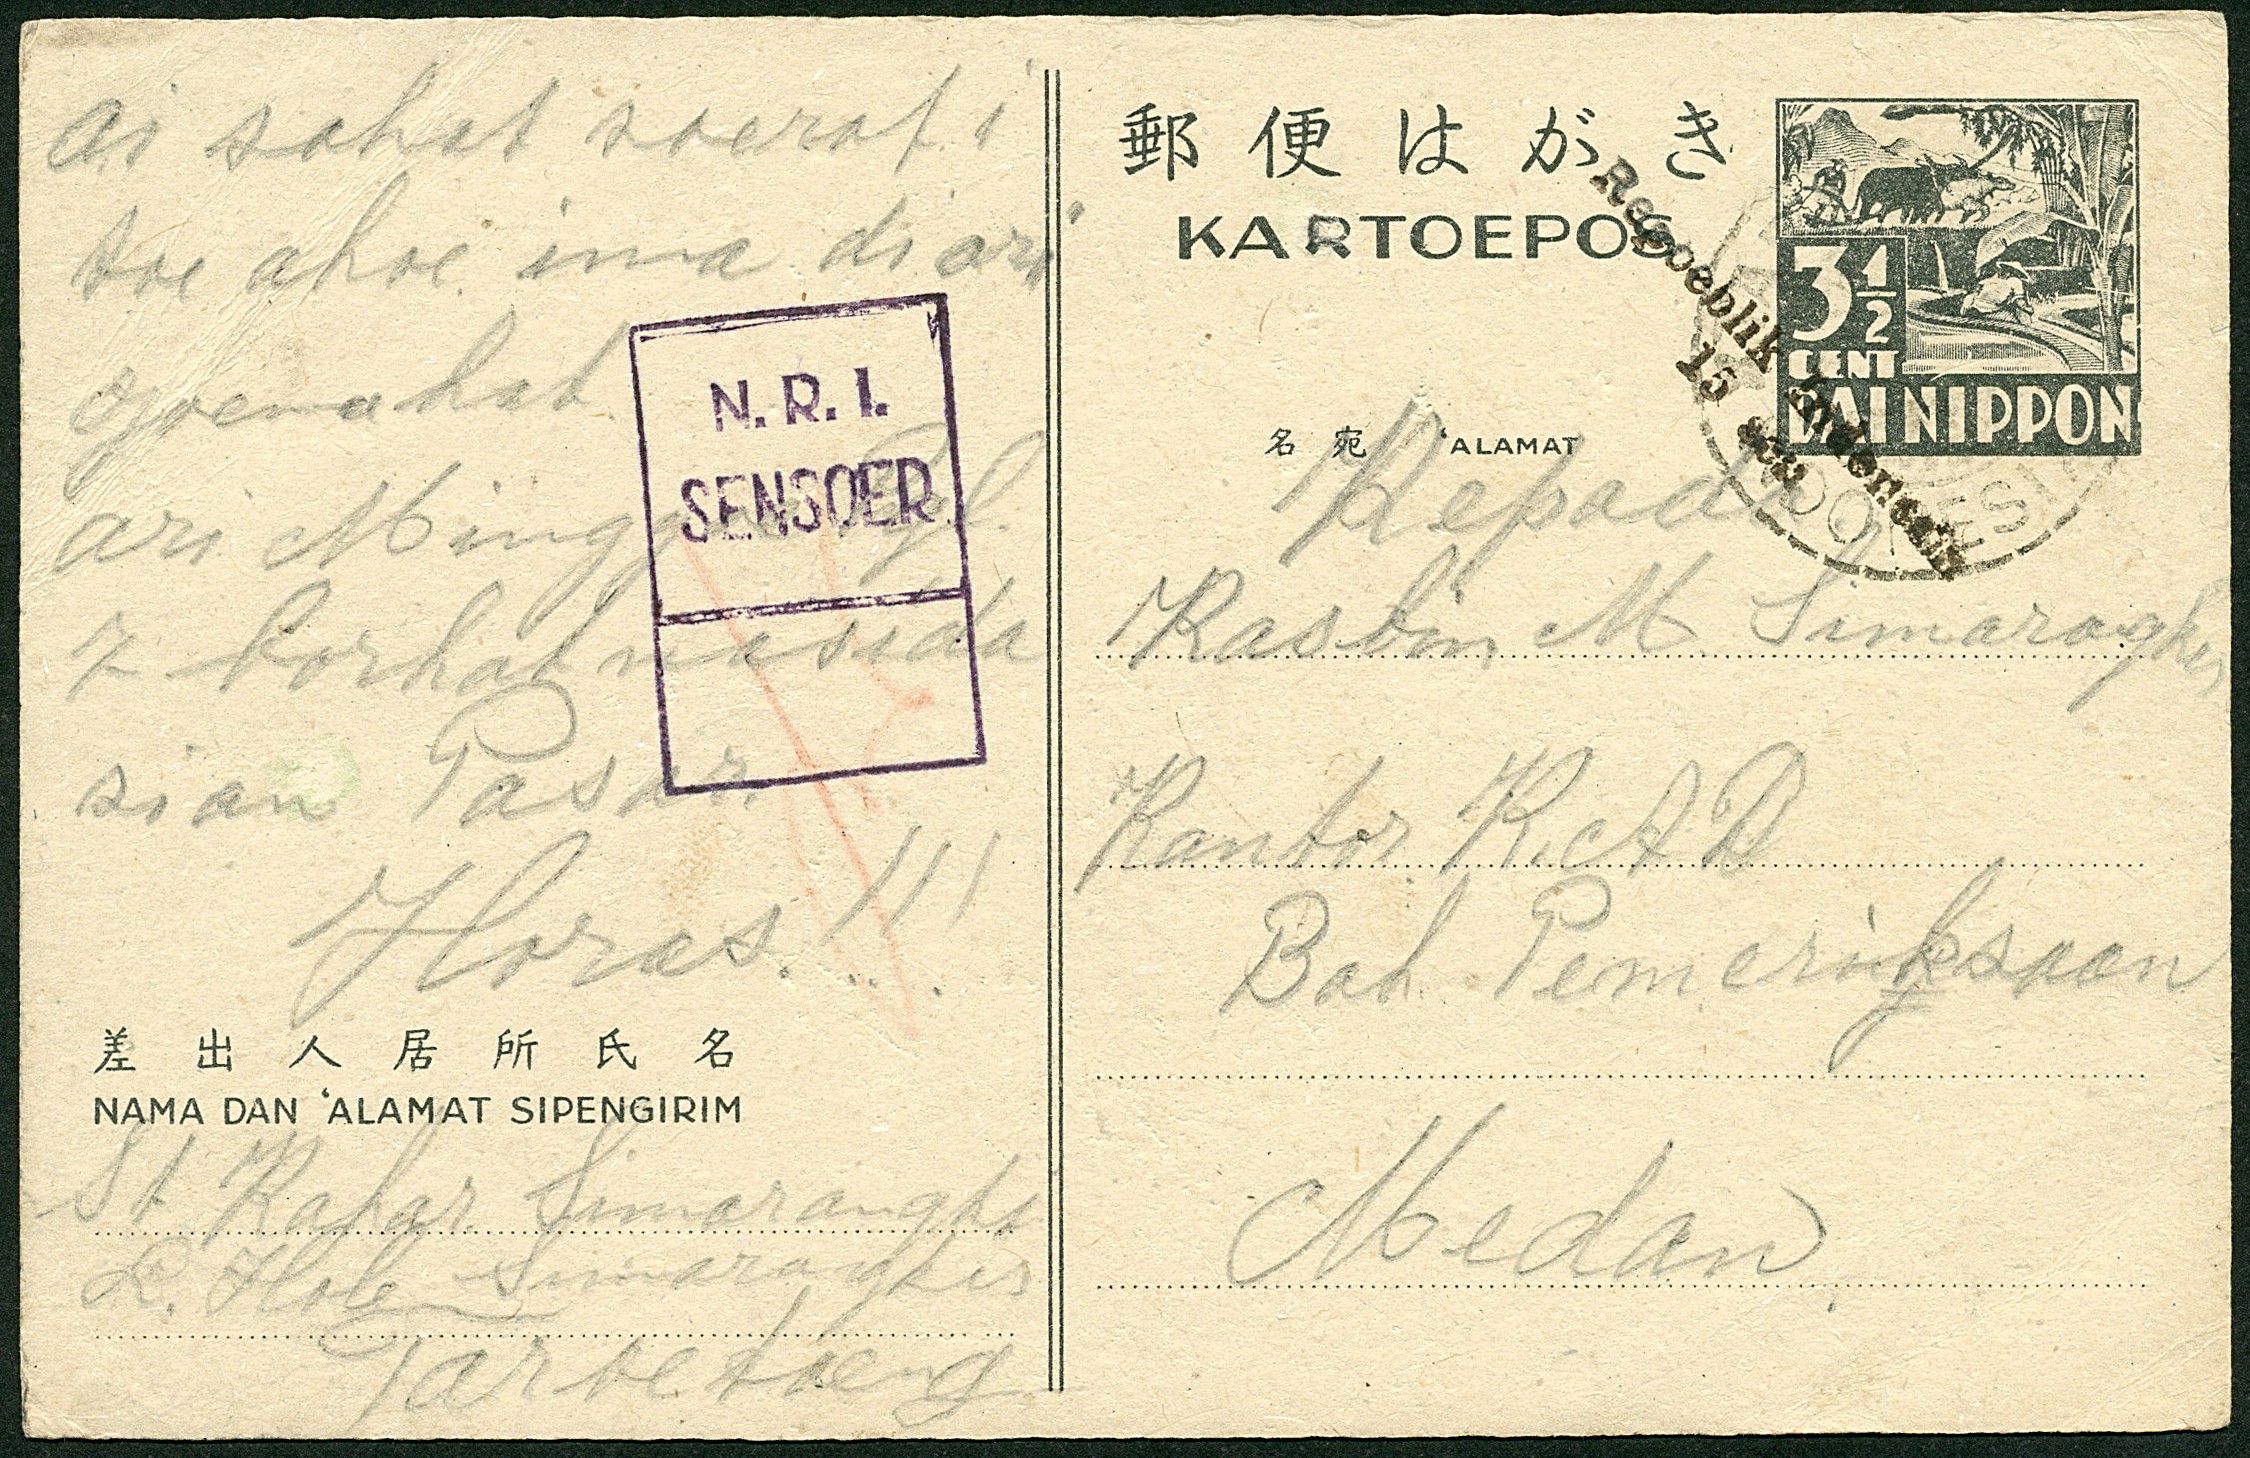 ai sahat soerat i
toe ahoe ima di ari
djoemahat.
ari Minggoe Tgl.
7 borhat nasida
sian Pasar.
Horas!!!
N.R.I.
SENSOER
差出人居所氏名
NAMA DAN 'ALAMAT SIPENGIRIM
St Simarangkir
Simarangkir
Taroetoeng
郵便はがき
KARTOEPOS
3 1/2
CENT
DAI NIPPON
Repoeblik Indonesia
15 sen
名宛 'ALAMAT
Kepada
Kasbin M Simarangkir
Kantor K.A.D
Bah Pemeriksaan
Medan